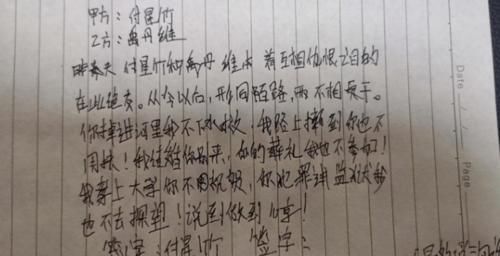 甲方：付星竹
乙方：禹丹维
昨天 付星竹和禹丹维本着互相仇恨之目的
在此绝交。从今以后，形同陌路，两不相关于。
你掉进河里我不下水救，我路上摔到你也不
用扶！我结婚你别来，你的葬礼我也不参加！
我考上大学你不用祝贺，你犯罪进监狱我
也不去探望！说到做到 分享！
签字：付星竹 签字：